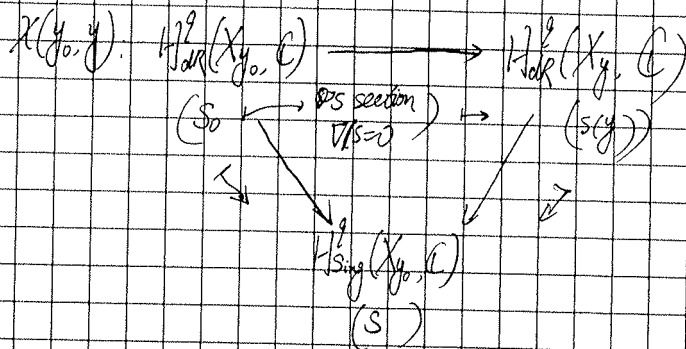 χ(y₀, y): H^q_dR(X_y₀, ℂ) ⟶ H^q_dR(X_y, ℂ)
(S₀ ⟷ s section ) ↦ (s(y))
∇/s=0
H^q_Sing(X_y₀, ℂ)
(S )